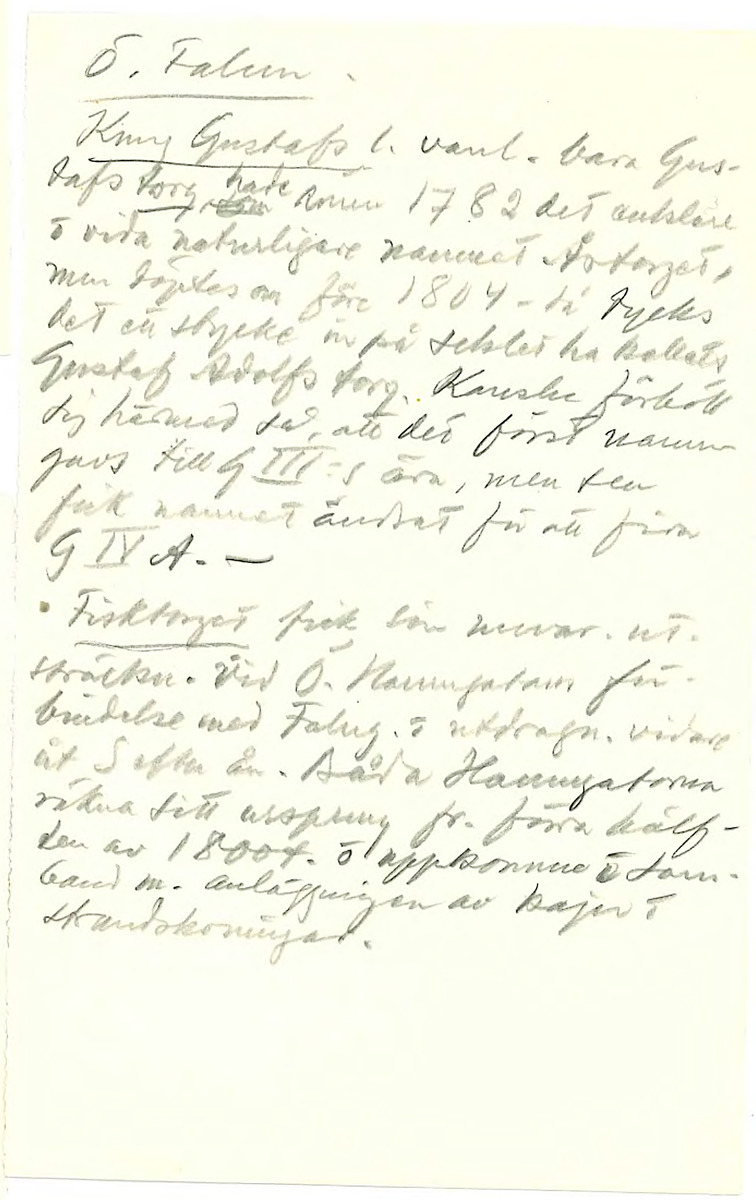 Ö. Falun
Kung Gustafs l. vanl. bara Gus-
tafs torg hade ännu 1782 det enklare
o vida naturligare namnet Åtorget,
men döptes om före 1804 - då tycks
det ett stycke in på seklet ha kallats
Gustaf Adolfs torg. Kanske förhöll
sig härmed så, att det först namn
gavs till G III-s ära, men sen
fick namnet ändrat för att fira
G IV A. —
Fisktorget fick sin nuvar. ut-
sträckn. vid Ö. Hamngatans för-
bindelse med Falug. o utdragn. vidare
åt S efter ån. Båda Hamngatorna
räkna sitt ursprung fr. förra hälf-
ten av 1800t. o uppkommo i sam-
band m. anläggningen av kajer o
strandskoningar.